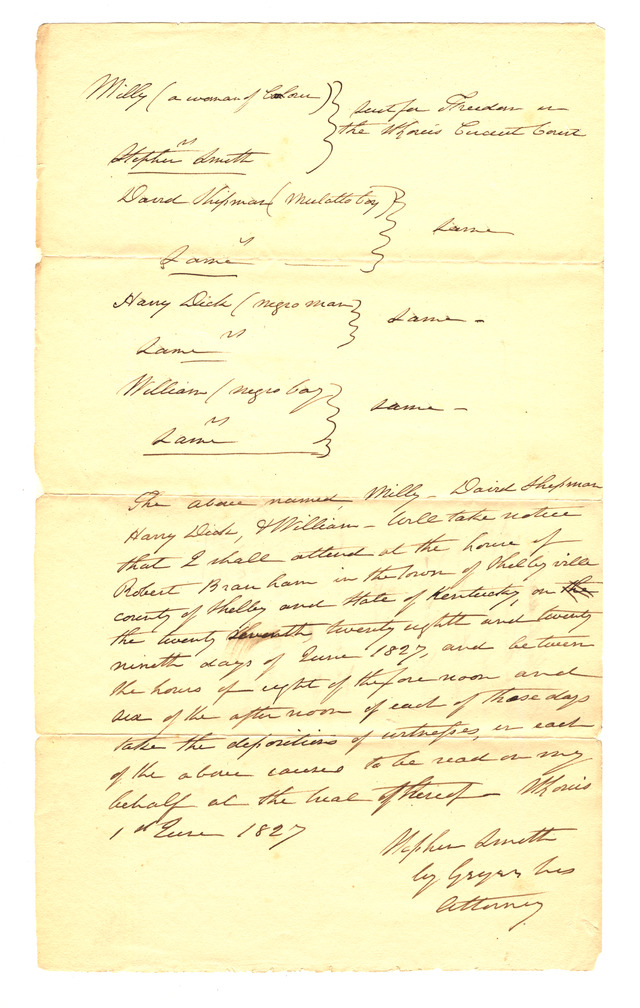 Milly (a woman of Colour)
vs
Stephen Smith
suit for Freedom in
the St Louis Circuit Court
David Shipman (mulatto boy)
vs
Same
same
Harry Dick (negro man
vs
Same
same -
William (negro boy
vs
Same
same -
The above named, Milly - David Shipman
Harry Dick, & William - Will take notice
that I shall attend at the house of
Robert Branham in the town of Shelbyville
county of Shelby and State of Kentucky, on the
the twenty seventh, twenty eighth and twenty
ninth days of June 1827, and between
the hours of eight of the fore noon and
six of the after noon of each of those days
take the depositions of witnesses, in each
of the above causes to be read on my
behalf at the trial thereof - St Louis
1st June 1827
Stephen Smith
by his
Attorney